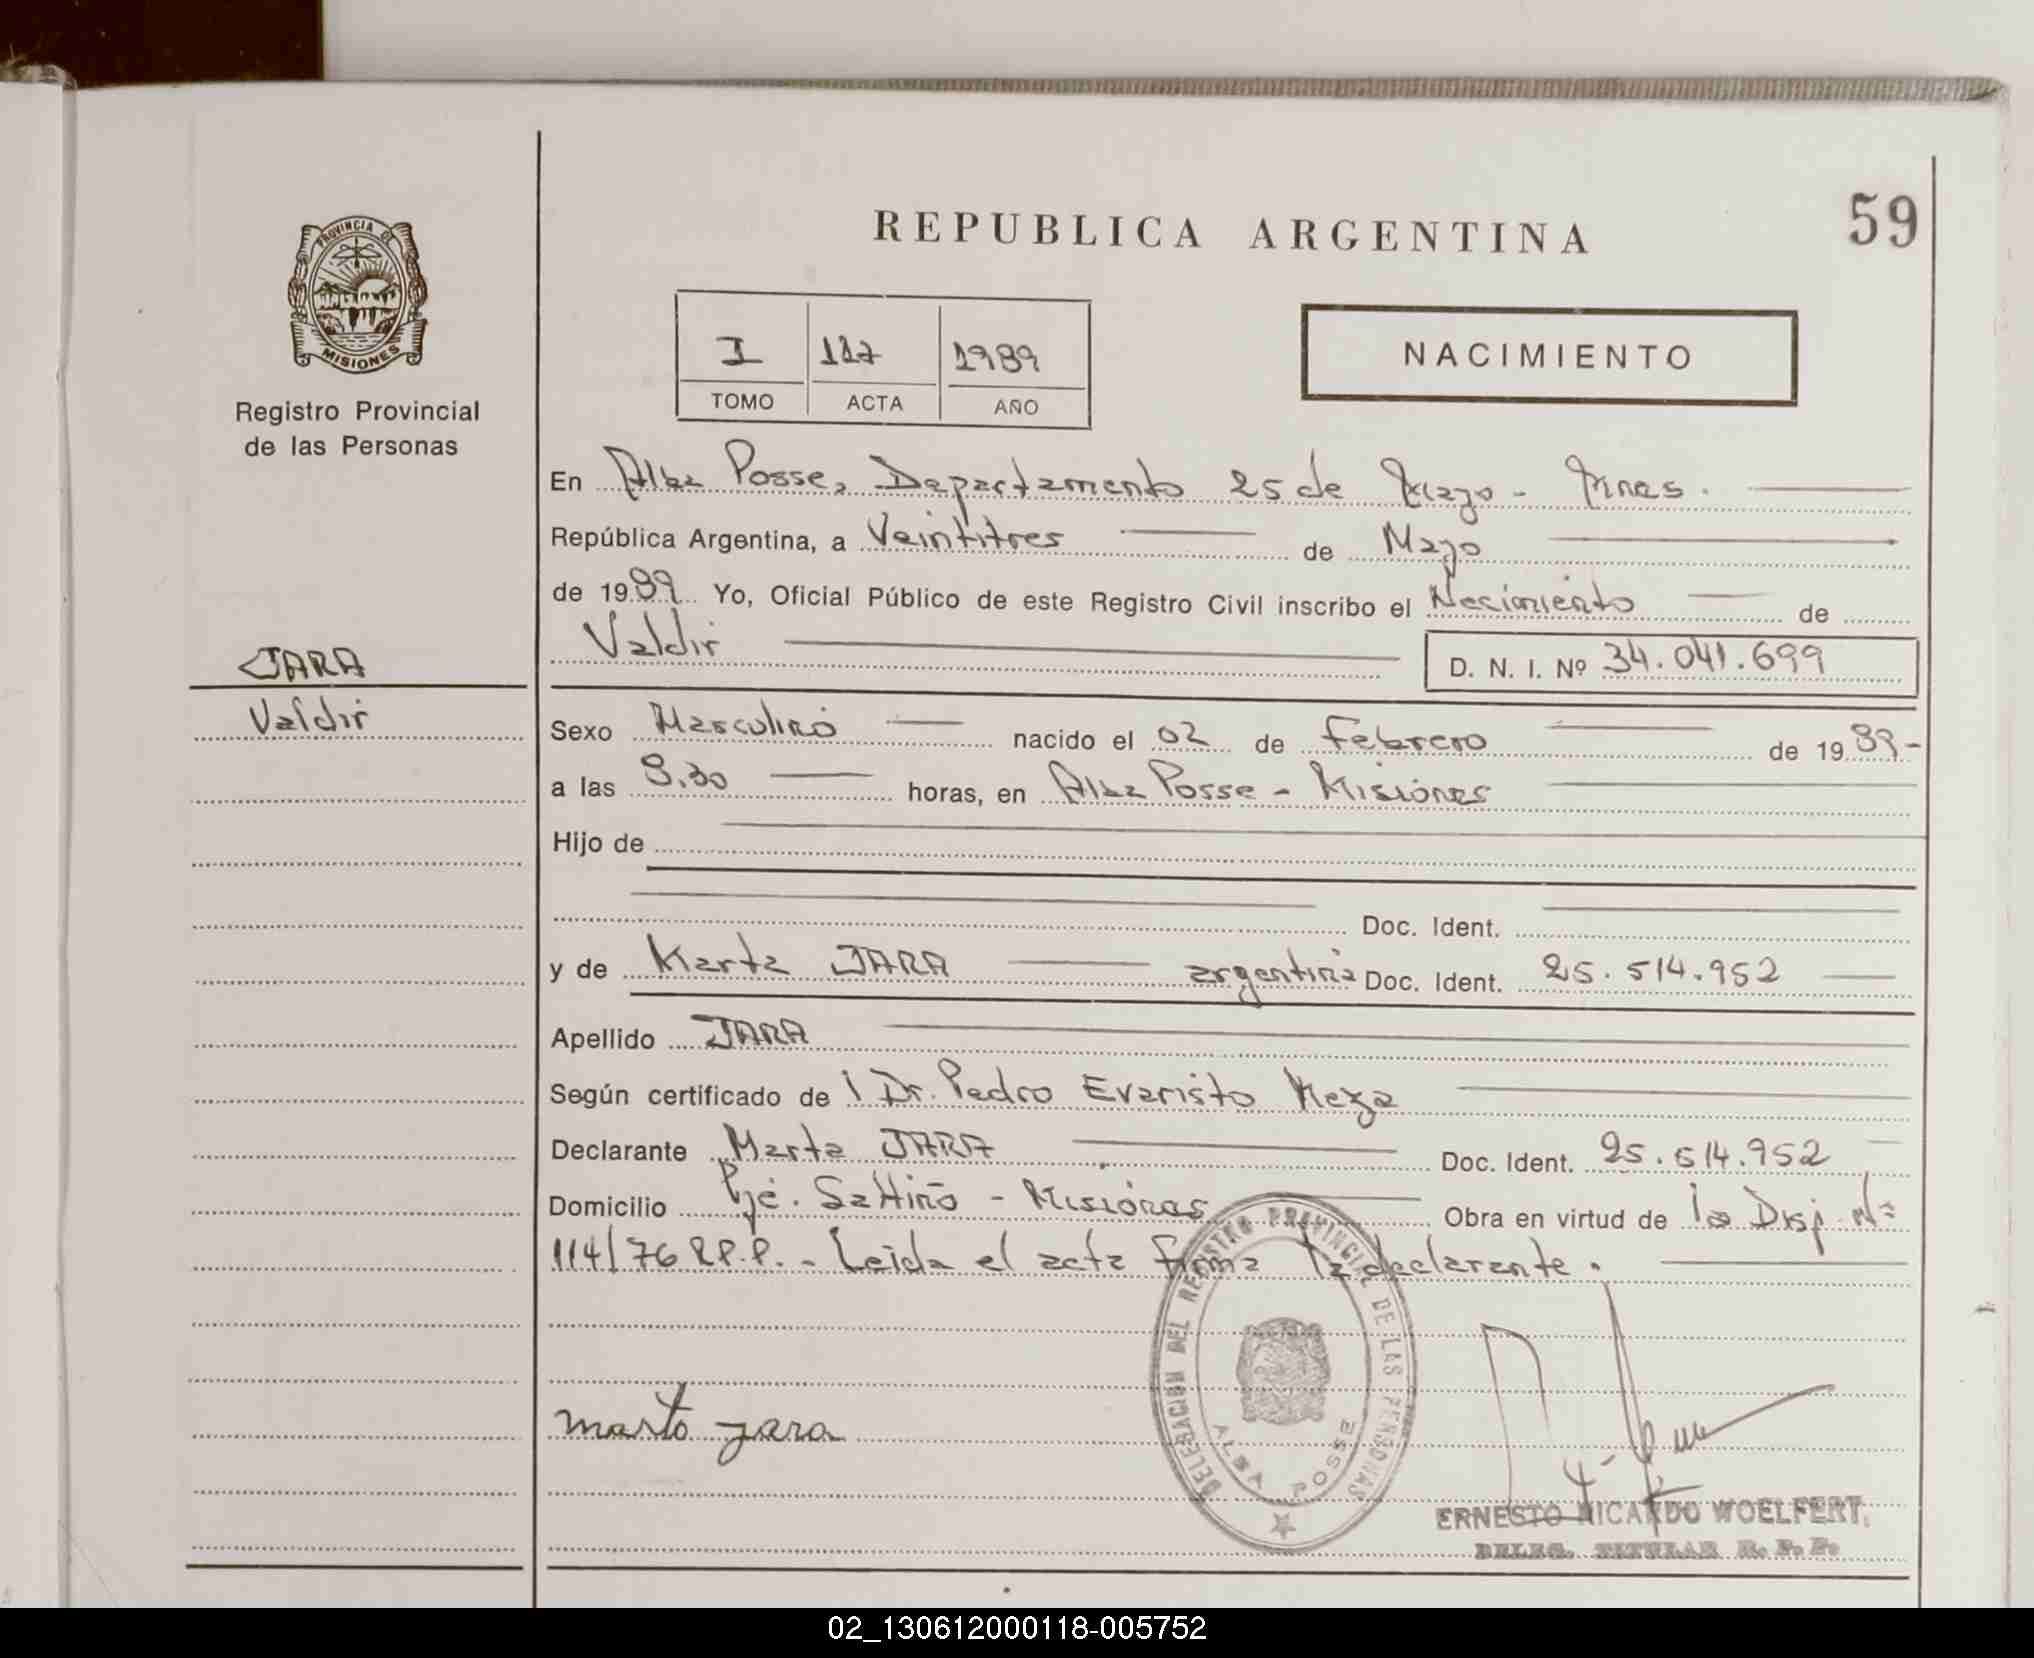 PROVINCIA DE
MISIONES
Registro Provincial
de las Personas
JARA
Valdir
REPUBLICA ARGENTINA
59
I 117 1989
TOMO ACTA AÑO
NACIMIENTO
En Alba Posse, Departamento 25 de Mayo - Mnes.
República Argentina, a Veintitres de Mayo
de 1989 Yo, Oficial Público de este Registro Civil inscribo el Nacimiento de
Valdir D. N. I. Nº 34.041.699
Sexo Masculino nacido el 02 de Febrero de 1989-
a las 8,30 horas, en Alba Posse - Misiones
Hijo de
Doc. Ident.
y de Marta JARA argentina Doc. Ident. 25.514.952
Apellido JARA
Según certificado de l Dr. Pedro Evaristo Meza
Declarante Marta JARA Doc. Ident. 25.514.952
Domicilio Pje. Saltiño - Misiones Obra en virtud de la Disp. Nº
114/76 R.P.P. - Leida el acta firma la declarante.
marta jara
DELEGACION DEL REGISTRO PROVINCIAL DE LAS PERSONAS
ALBA POSSE
ERNESTO RICARDO WOELFERT
DELEG. TITULAR R. P. P.
02_130612000118-005752